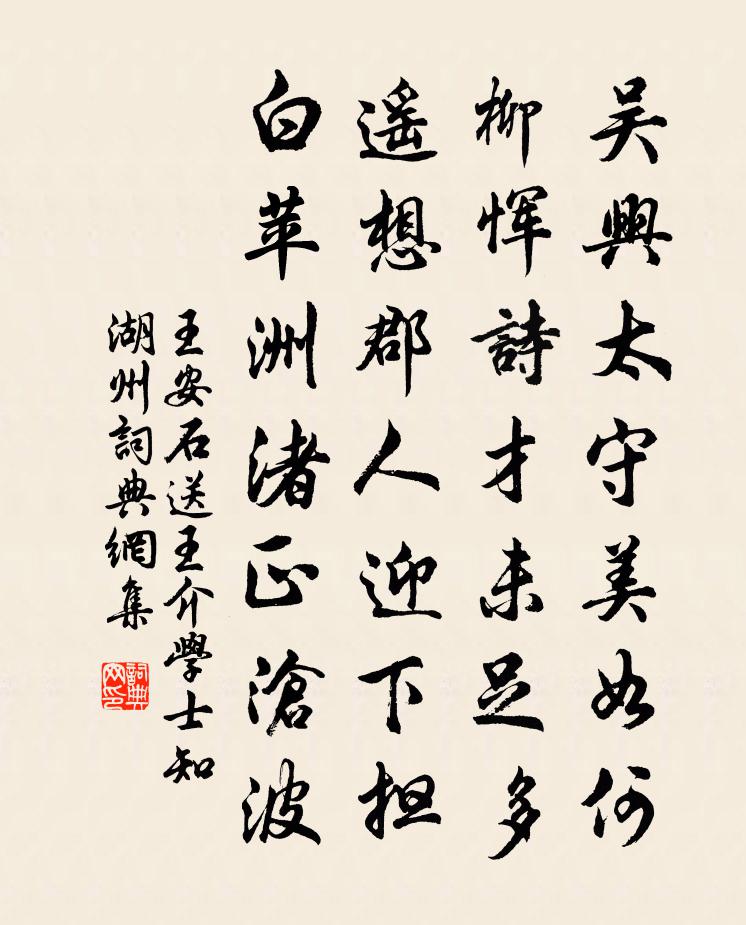 吴興太守美如何
柳惲詩才未足多
遥想郡人迎下担
白苹洲渚正滄波
王安石送王介學士知
湖州詞典網集
詞典网印